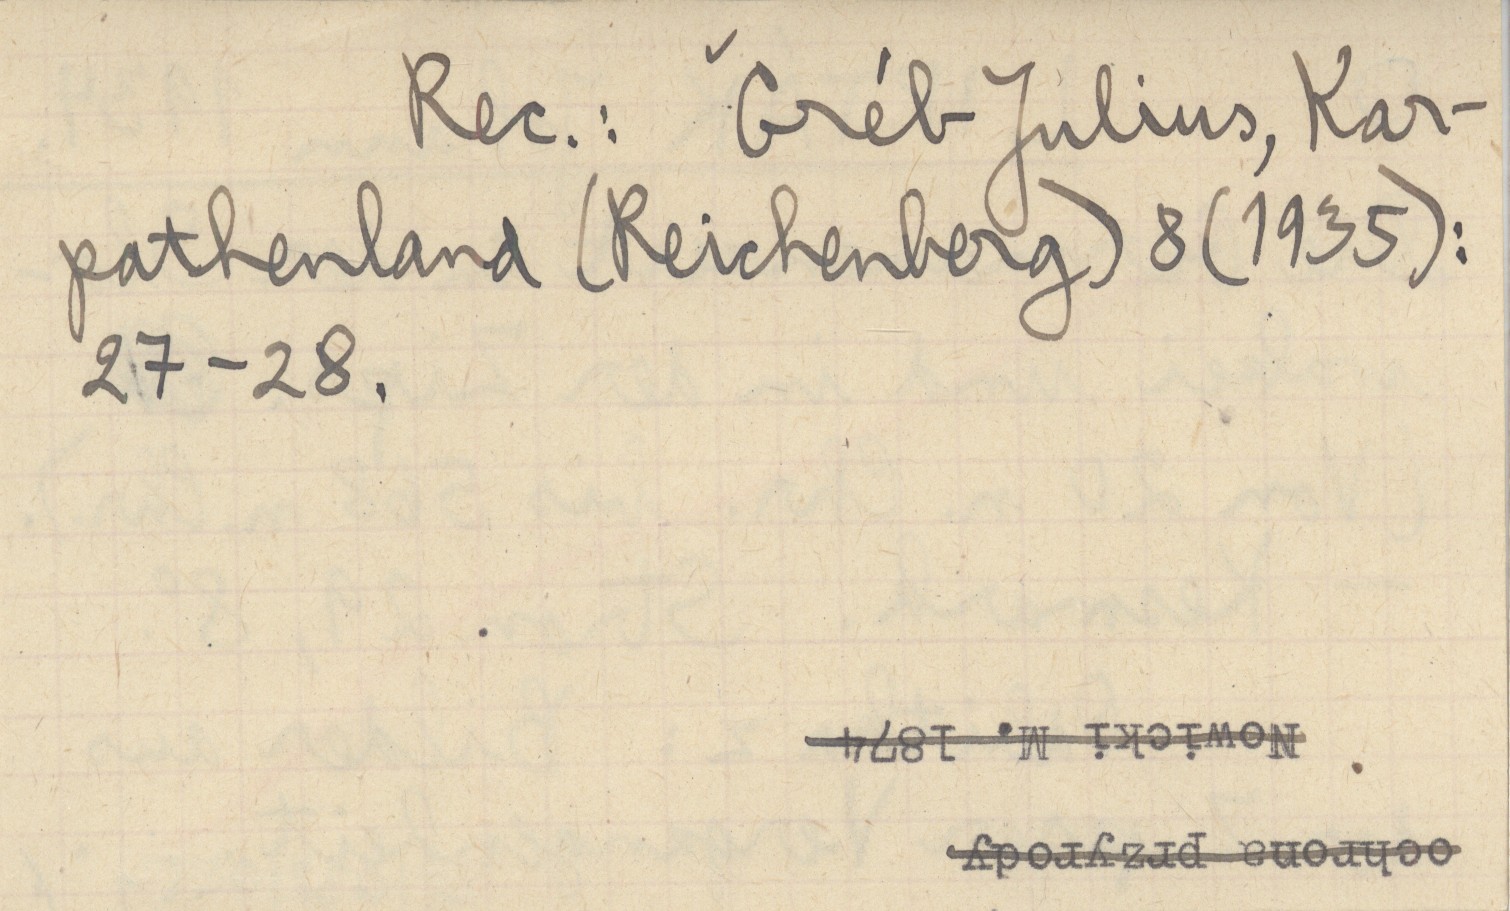 Rec.: Gréb Julius, Kar-
pathenland (Reichenberg) 8 (1935):
27-28.
Nowicki M. 1874
ochrona przyrody